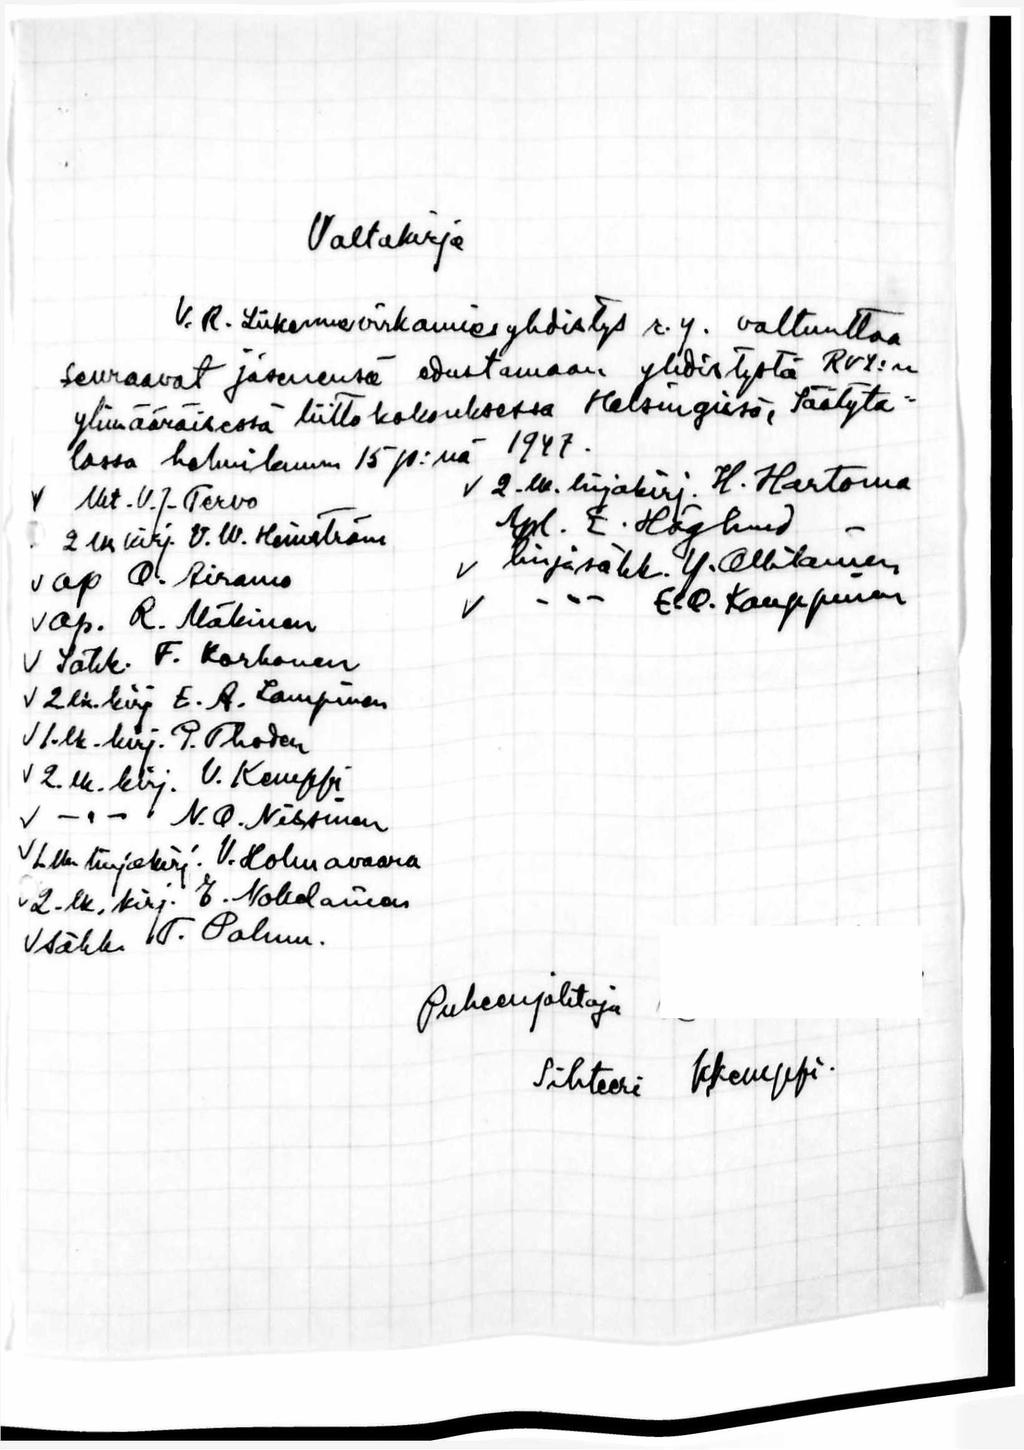 Valtakirja
V.R. Liikennevirkamiesyhdistys r.y. valtuuttaa
seuraavat jäsenensä edustamaan yhdistystä RVY:n
ylimääräisessä liittokokouksessa Helsingissä, Säätyta-
lossa helmikuun 15 p:nä 1947.
V. J. Tervo
2 lk kirj. V. W. Heinström
√ ap O. Airamo
√ ap. R. Mäkinen
√ Sähk. F. Korhonen
√ 2 lk. kirj E. A. Lampinen
√ 1. lk. kirj. P. Thoden
√ 2. lk. kirj. V. Kemppi
√ — " — N. O. Nissinen
√ 1. lk. linjakirj. V. Holmavaara
√ 2. lk. kirj. E.
√ sähk. T. Palmu.
√ 2. lk. linjakirj. H. Hartoma
E. Höglund –
√ linjasähk. Y. Ollikainen
√ - " - E. O. Kauppinen
Puheenjohtaja
Sihteeri VKemppi.